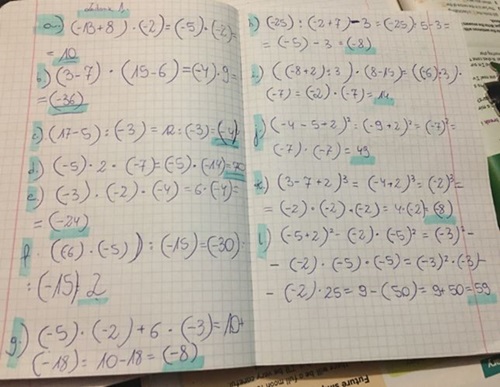 a) (-13+8) · (-2) = (-5) · (-2) =
= 10
b) (3-7) · (15-6) = (-4) · 9 =
= (-36)
c) (17-5) : (-3) = 12 : (-3) = (-4)
d) (-5) · 2 · (-7) = (-5) · (-14) =
e) (-3) · (-2) · (-4) = 6 · (-4) =
= (-24)
f. ((6) · (-5)) : (-15) = (-30) :
: (-15) = 2
g.) (-5) · (-2) + 6 · (-3) = 10+
(-18) = 10-18 = (-8)
h) (-25) : (-2+7) - 3 = (-25) : 5 - 3 =
= (-5) - 3 = (-8)
((-8+2) : 3) · (8-15) = ((-6) : 3) ·
(-7) = (-2) · (-7) = 14
j) (-4-5+2)² = (-9+2)² = (-7)² =
(-7) · (-7) = 49
k) (3-7+2)³ = (-4+2)³ = (-2)³ =
= (-2) · (-2) · (-2) = 4 · (-2) = (-8)
l) (-5+2)² - (-2) · (-5)² = (-3)² -
- (-2) · (-5) · (-5) = (-3)² · (-3) -
- (-2) · 25 = 9 - (50) = 9 + 50 = 59
Future